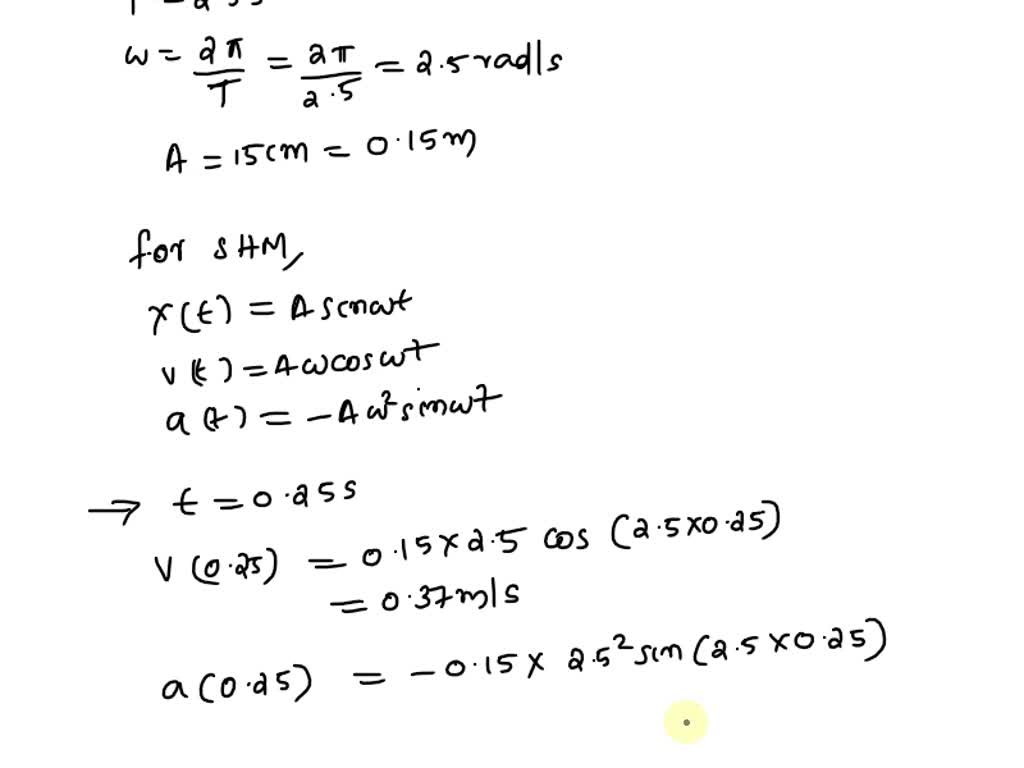 ω = 2π/T = 2π/2.5 = 2.5 rad/s
A = 15 cm = 0.15 m
for SHM,
x(t) = A sin ωt
v(t) = Aω cos ωt
a(t) = -Aω² sin ωt
→ t = 0.25 s
v(0.25) = 0.15 × 2.5 cos (2.5 × 0.25)
= 0.37 m/s
a(0.25) = -0.15 × 2.5² sin (2.5 × 0.25)